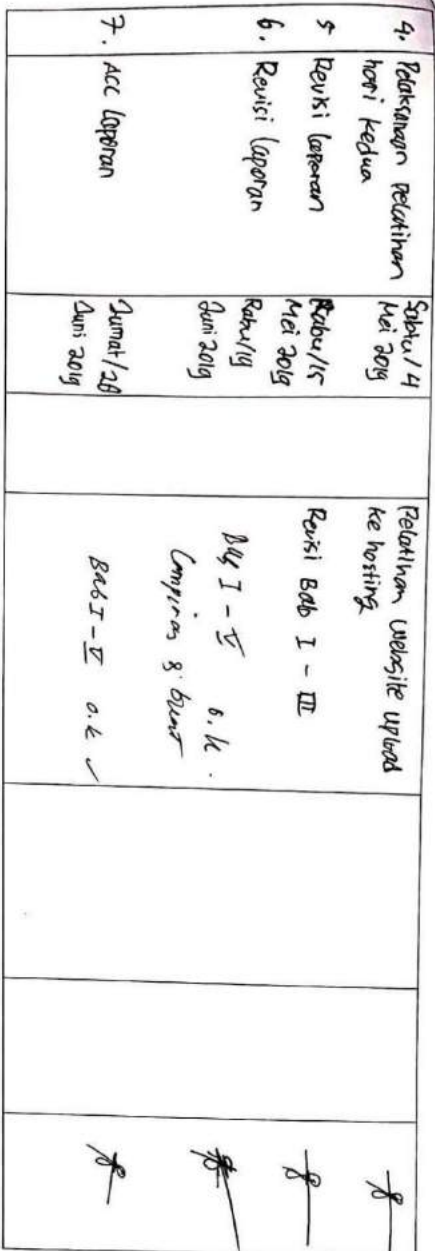 4. Pelaksanaan Pelatihan
hari kedua
Sabtu/4
Mei 2019
Pelatihan Website upload
ke hosting
5 Revisi laporan
Rabu/15
Mei 2019
Revisi Bab I - III
6. Revisi laporan
Rabu/19
Juni 2019
Bab I - V o.k.
Lampiran
7. ACC laporan
Jumat/28
Juni 2019
Bab I - V o.k ✓